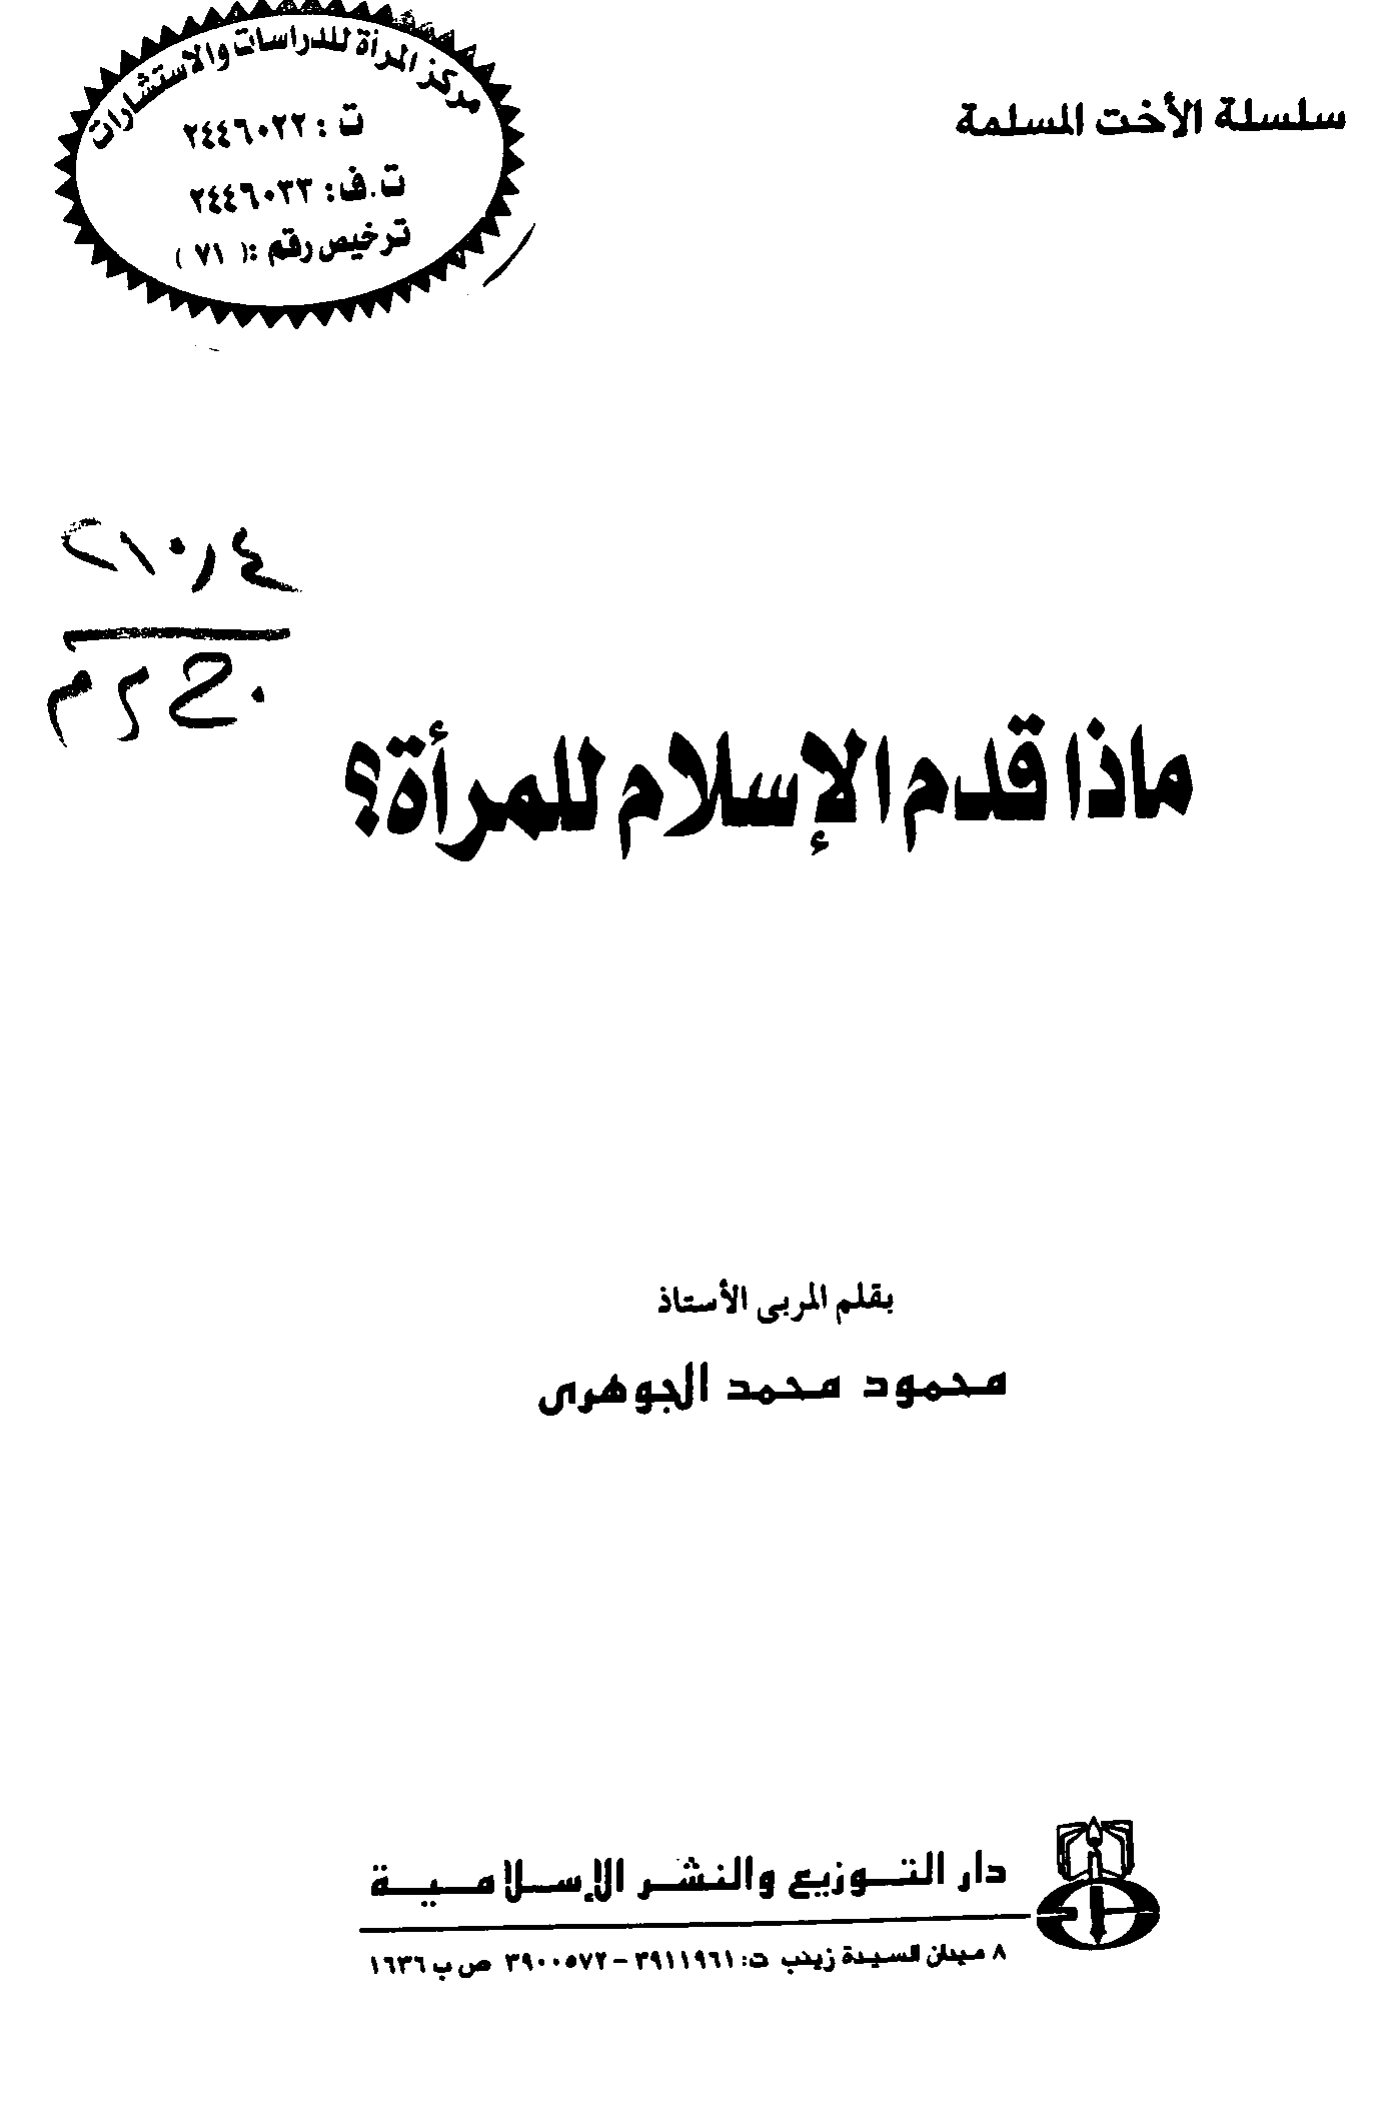 سلسلة الأخت المسلمة
مركز المرأة للدراسات والاستشارات
ت : ٢٤٤٦٠٢٢
ت.ف: ٢٤٤٦٠٣٣
ترخيص رقم :( ٧١ )
٢١٠٫٤
ماذا قدم الإسلام للمرأة؟
بقلم المربى الأستاذ
محمود محمد الجوهرى
دار التوزيع والنشر الإسلامية
٨ ميدان السيدة زينب ت: ٣٩١١٩٦١ - ٣٩٠٠٥٧٢ ص ب ١٦٣٦